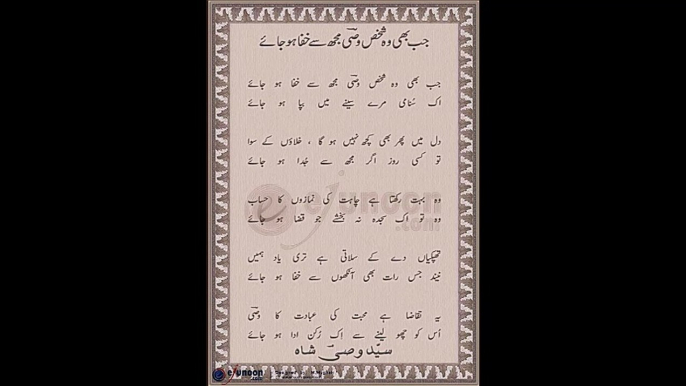 جب بھی وہ شخص وصیؔ مجھ سے خفا ہو جائے
جب بھی وہ شخص وصیؔ مجھ سے خفا ہو جائے
اک سُنامی مرے سینے میں بپا ہو جائے
دل میں پھر بھی کچھ نہیں ہو گا ، خلاؤں کے سوا
تو کسی روز اگر مجھ سے جُدا ہو جائے
وہ بہت رکھتا ہے چاہت کی نمازوں کا حساب
وہ تو اک سجدہ نہ بخشے جو قضا ہو جائے
ejunoon
.com
تھپکیاں دے کے سلاتی ہے تری یاد ہمیں
نیند جس رات بھی آنکھوں سے خفا ہو جائے
یہ تقاضا ہے محبت کی عبادت کا وصیؔ
اُس کو چھو لینے سے اِک رُکن ادا ہو جائے
سیّد وصیؔ شاہ
ejunoon
.com